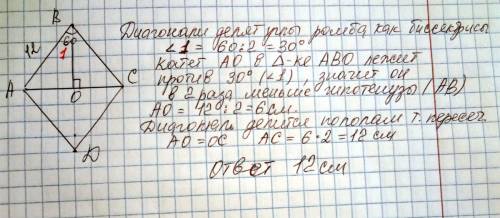 B
12
60
1
A
O
C
D
Диагонали делят углы ромба как биссектрисы
∠1 = 60:2 = 30°
Катет АО в Δ-ке АВО лежит
против 30° (∠1), значит он
в 2 раза меньше гипотенузы (АВ)
АО = 12:2 = 6см.
Диагонали делится пополам т. пересеч.
АО = ОС АС = 6·2 = 12 см
Ответ 12см